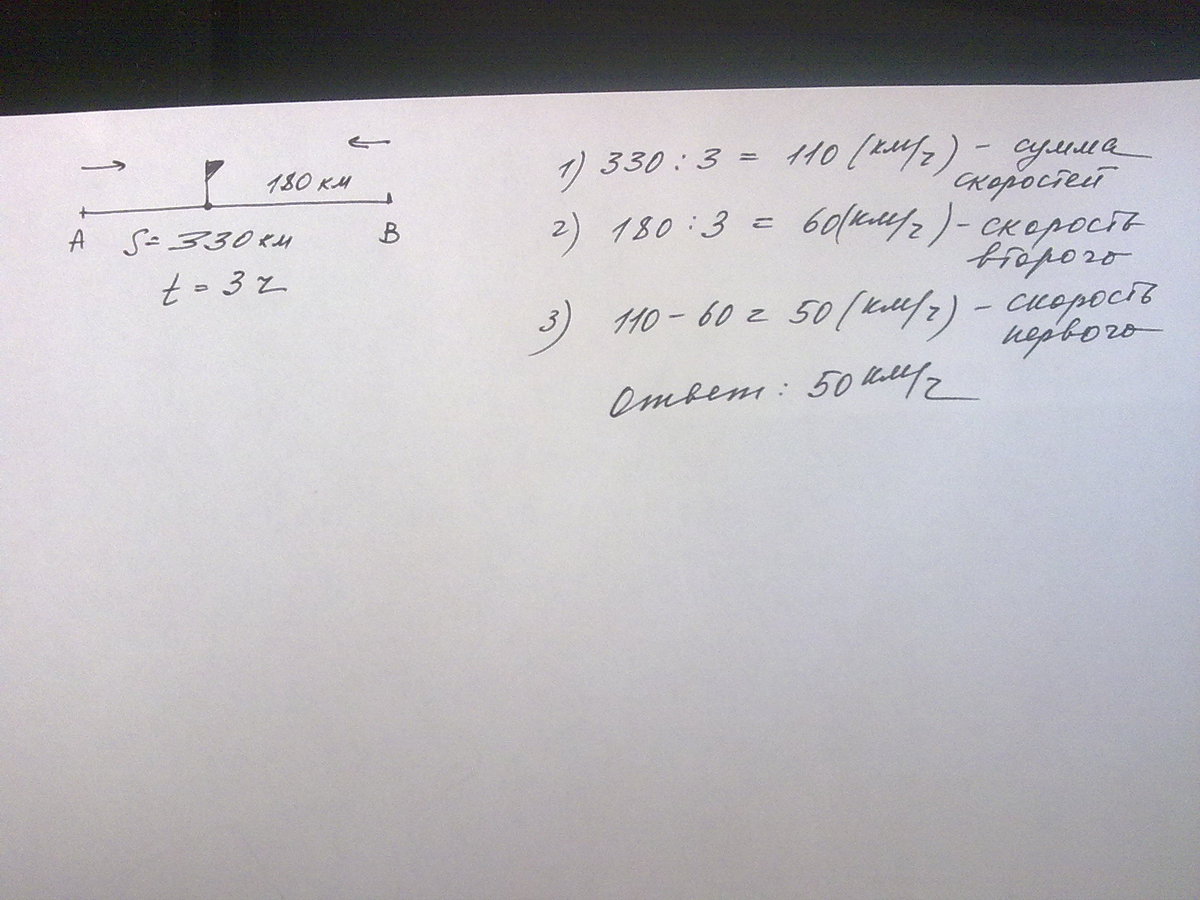 180 км
A
B
S = 330 км
t = 3 ч
1) 330 : 3 = 110 (км/ч) - сумма
скоростей
2) 180 : 3 = 60 (км/ч) - скорость
второго
3) 110 - 60 = 50 (км/ч) - скорость
первого
Ответ: 50 км/ч